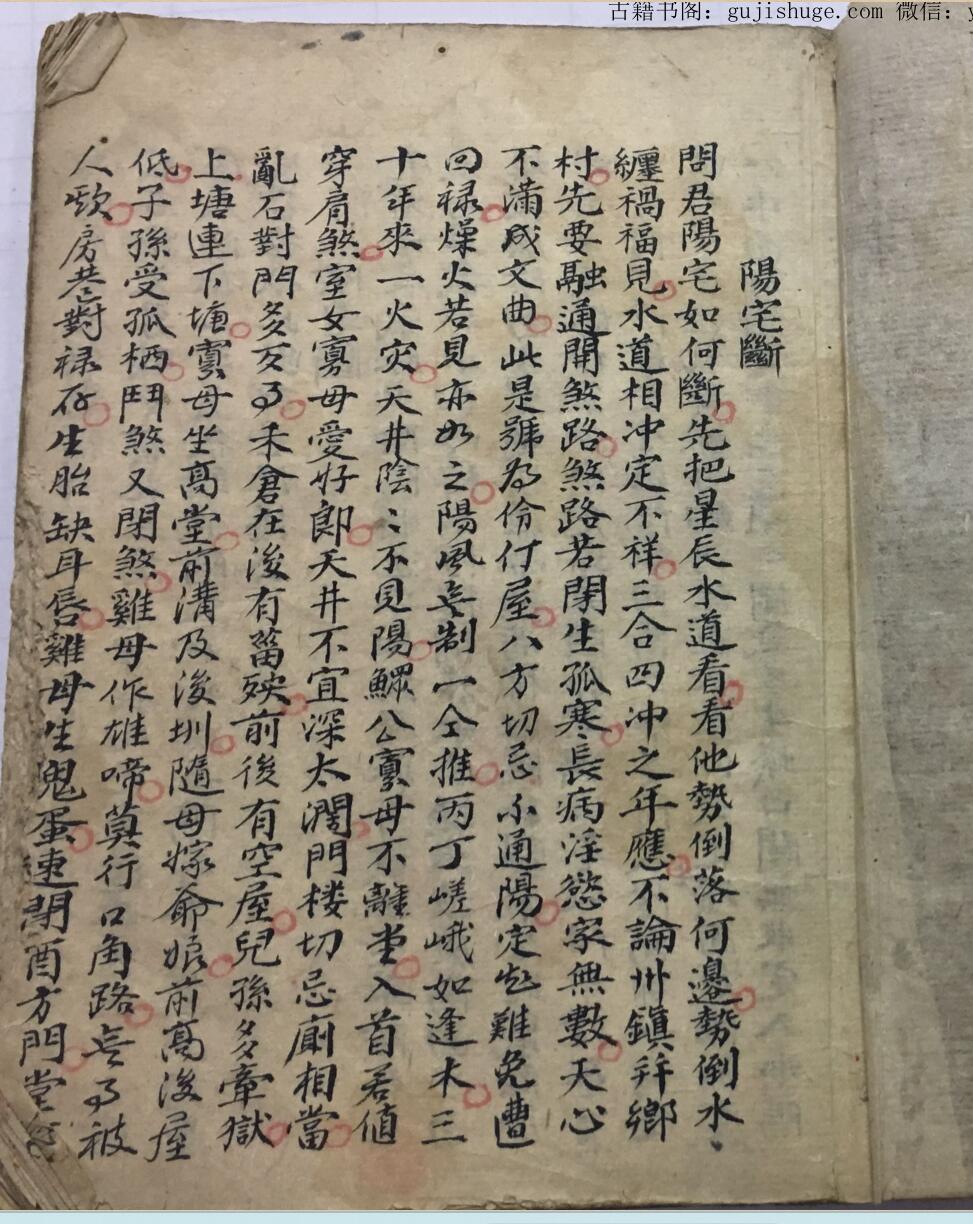 古籍书阁：gujishuge.com 微信：y
陽宅斷
問君陽宅如何斷先把星辰水道看看他勢倒落何邊勢倒水
纏禍福見水道相冲定不祥三合四冲之年應不論州鎮并鄉
村先要融通開煞路煞路若閉生孤寒長病淫慾家無數天心
不滿成文曲此是號為伶仃屋八方切忌不通陽定起難免遭
回禄燥火若見亦如之陽風無制一仝推丙丁嵯峨如逢木三
十年來一火灾天井陰〻不見陽鰥公寡母不離堂入首若值
穿肩煞室女寡母愛好郎天井不宜深太濶門楼切忌廟相當
亂石對門多歹事禾倉在後有災殃前後有空屋兒孫多牽獄
上塘連下塘寡母坐高堂前溝及後圳隨母嫁爺娘前高後屋
低子孫受孤栖鬥煞又閉煞雞母作雄啼莫行口角路無事被
人欺房巷對禄存生胎缺耳唇雞母生鬼蛋連閉酉方門堂